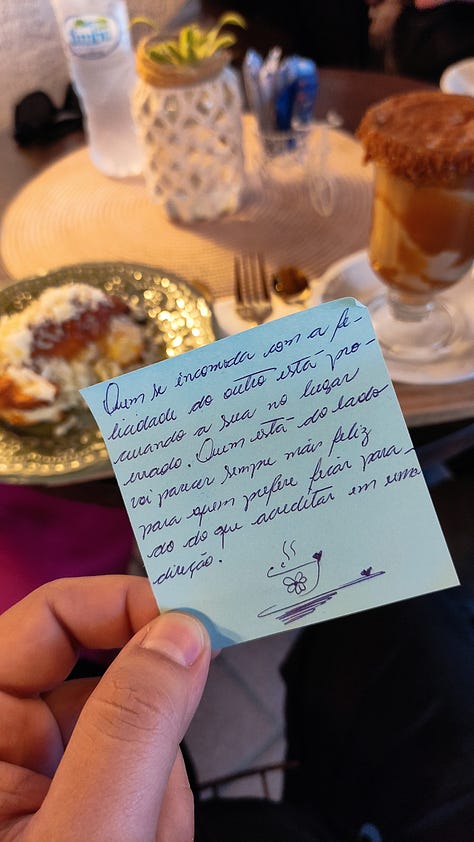 Quem se incomoda com a fe-
licidade do outro está pro-
curando a sua no lugar
errado. Quem está do lado
vai parecer sempre mais feliz
para quem prefere ficar para-
do do que acreditar em uma
direção.